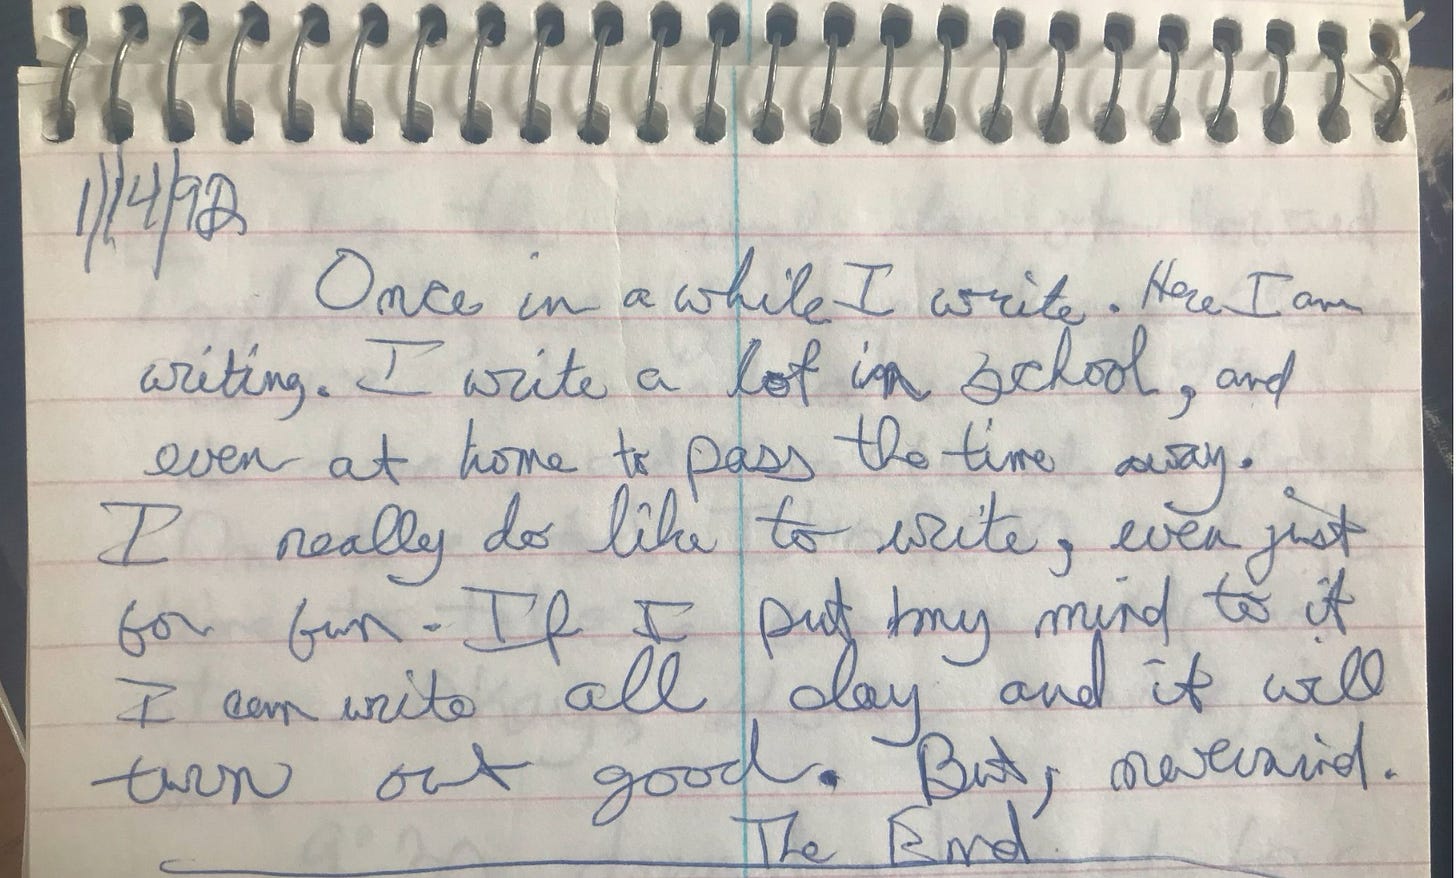 1/14/92
Once in a while I write. Here I am
writing. I write a lot in school, and
even at home to pass the time away.
I really do like to write, even just
for fun. If I put my mind to it
I can write all day and it will
turn out good. But, nevermind.
The End.